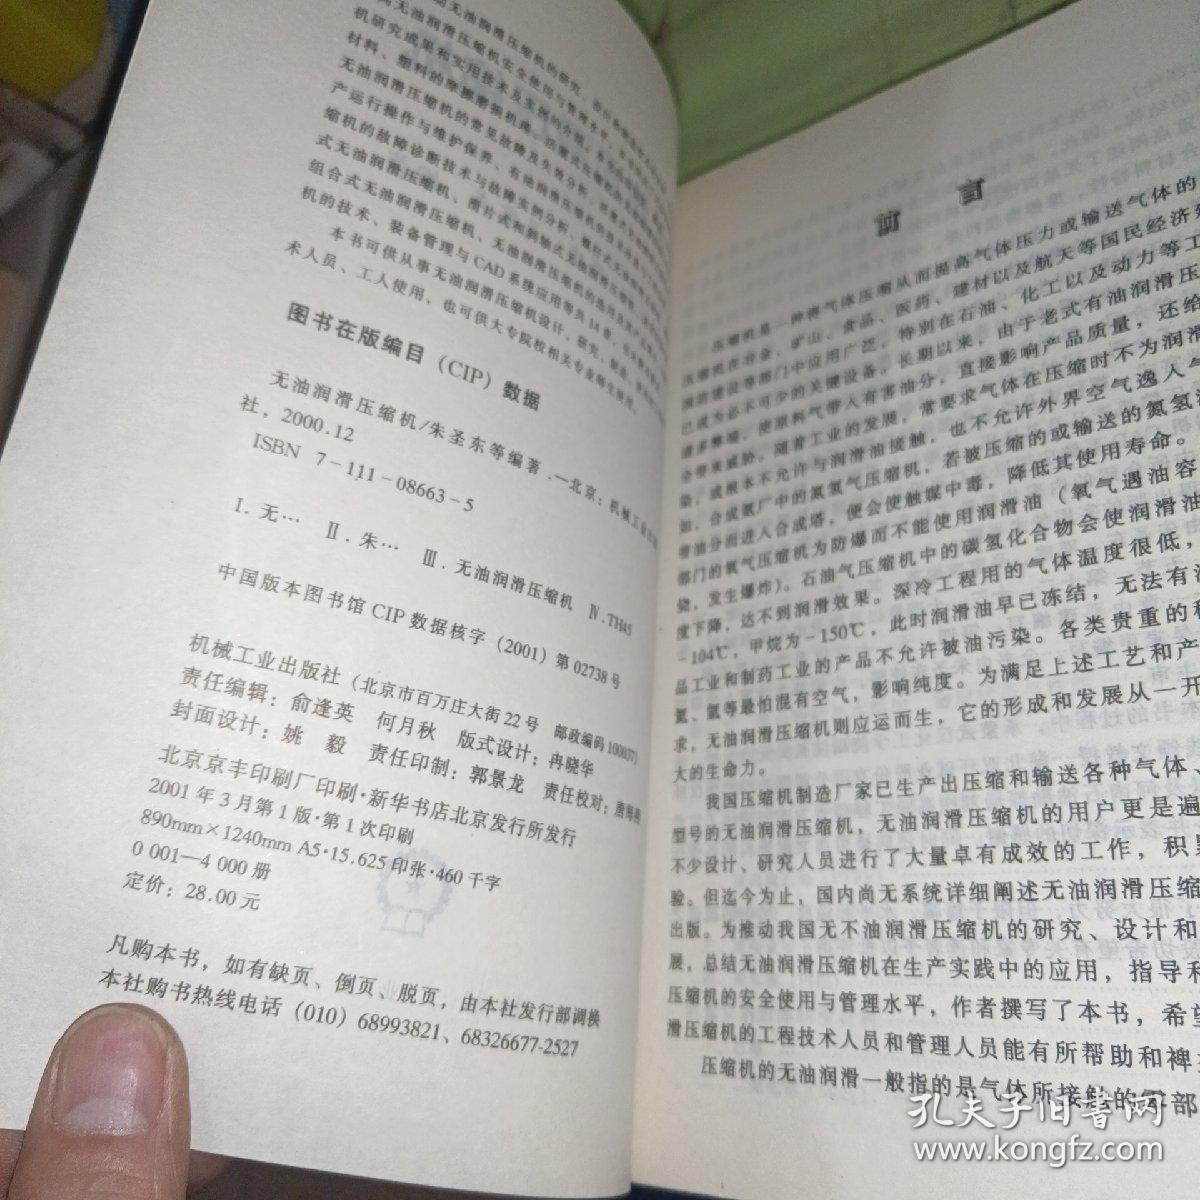 机研究成果和实用技术及实例的介绍。
材料、塑料的摩擦磨损机理、
无油润滑压缩机的常见故障及失效分析、
产运行操作与维护保养、有油润滑压缩机的
缩机的故障诊断技术与故障实例分析、
式无油润滑压缩机、滑片式和
组合式无油润滑压缩机、无油润滑压缩机的选用及
机的技术、装备管理与CAD系统应用等共14章。
本书可供从事无油润滑压缩机设计、研究、制造、
术人员、工人使用，也可供大专院校相关专业师生使用。
图书在版编目（CIP）数据
无油润滑压缩机/朱圣东等编著.—北京：机械工业出版
社，2000.12
ISBN 7-111-08663-5
Ⅰ.无… Ⅱ.朱… Ⅲ.无油润滑压缩机 Ⅳ.TH45
中国版本图书馆CIP数据核字（2001）第02738号
机械工业出版社（北京市百万庄大街22号 邮政编码100037）
责任编辑：俞逢英 何月秋 版式设计：冉晓华
封面设计：姚 毅 责任印制：郭景龙 责任校对：唐海燕
北京京丰印刷厂印刷·新华书店北京发行所发行
2001年3月第1版·第1次印刷
890mm×1240mm A5·15.625印张·460千字
0 001—4 000册
定价：28.00元
凡购本书，如有缺页、倒页、脱页，由本社发行部调换
本社购书热线电话（010）68993821、68326677-2527
前 言
压缩机是一种将气体压缩从而提高气体压力或输送气体的
压缩机在冶金、矿山、食品、医药、建材以及航天等国民经济
国防建设等部门中应用广泛，特别在石油、化工以及动力等工
已成为必不可少的关键设备。长期以来，由于老式有油润滑压
诸多弊端，使原料气带入有害油分，直接影响产品质量，还给
全带来威胁。随着工业的发展，常要求气体在压缩时不为润滑
染，或根本不允许与润滑油接触，也不允许外界空气逸入气
如，合成氨厂中的氮氢气压缩机，若被压缩的或输送的氮氢
带油分而进入合成塔，便会使触媒中毒，降低其使用寿命。
部门的氧气压缩机为防爆而不能使用润滑油（氧气遇油容
烧，发生爆炸）。石油气压缩机中的碳氢化合物会使润滑油
度下降，达不到润滑效果。深冷工程用的气体温度很低，
-104℃，甲烷为-150℃，此时润滑油早已冻结，无法有
品工业和制药工业的产品不允许被油污染。各类贵重的
氦、氩等最怕混有空气，影响纯度。为满足上述工艺和产
求，无油润滑压缩机则应运而生，它的形成和发展从一开
大的生命力。
我国压缩机制造厂家已生产出压缩和输送各种气体、
型号的无油润滑压缩机，无油润滑压缩机的用户更是遍
不少设计、研究人员进行了大量卓有成效的工作，积累
验。但迄今为止，国内尚无系统详细阐述无油润滑压缩
出版。为推动我国无不油润滑压缩机的研究、设计和
展，总结无油润滑压缩机在生产实践中的应用，指导和
压缩机的安全使用与管理水平，作者撰写了本书，希望
滑压缩机的工程技术人员和管理人员能有所帮助和裨
压缩机的无油润滑一般指的是气体所接触的零部
孔夫子旧书网
www.kongfz.com